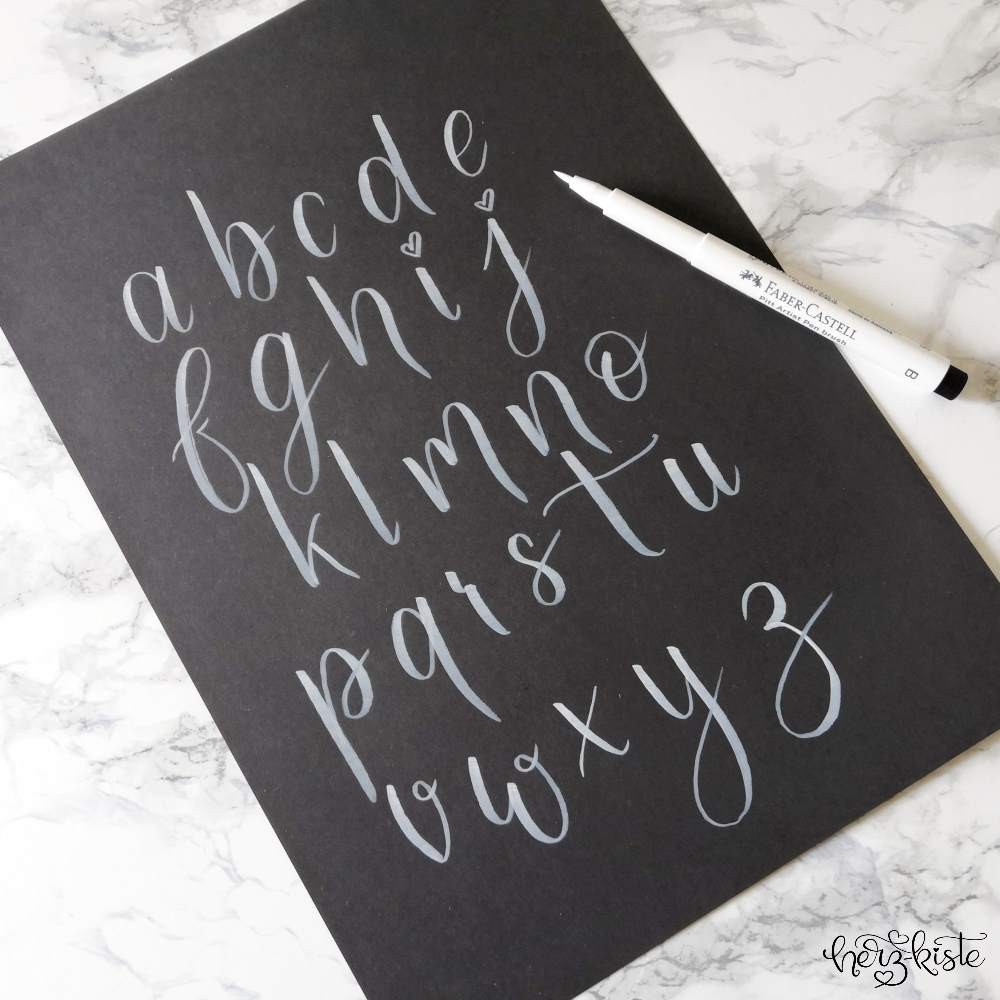 a b c d e
f g h i j
k l m n o
p q r s t u
v w x y z
FABER-CASTELL
Pitt Artist Pen brush
B
herz-kiste